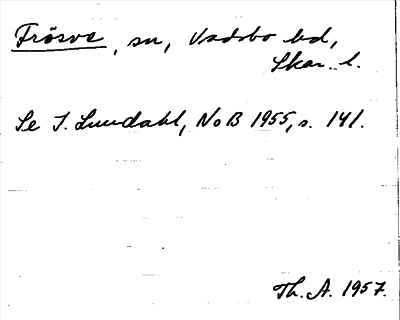 Frösve, sn, Vadsbo hd,
Skar. l.
Se I. Lundahl, NoB 1955, s. 141.
Th. A. 1957.